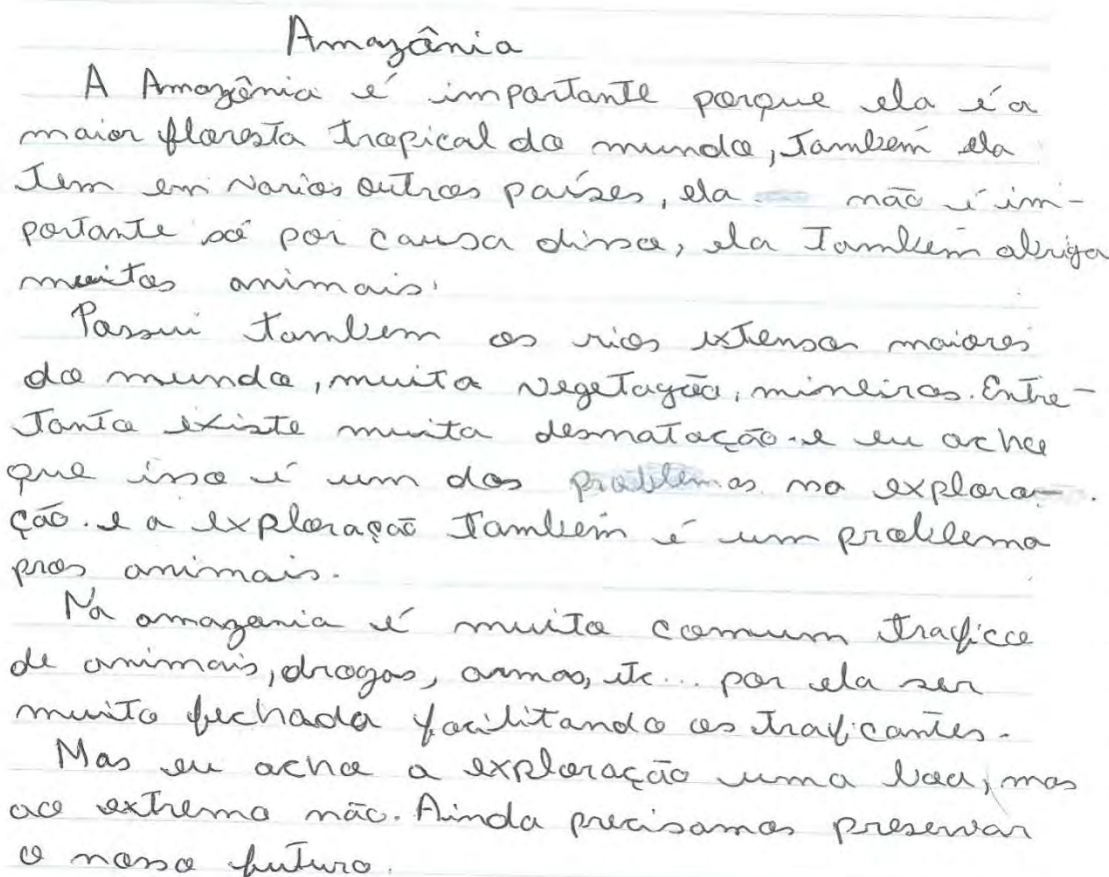 Amazônia
A Amazônia é importante porque ela é a
maior floresta tropical do mundo, também ela
tem em varios outros países, ela não é im-
portante só por causa disso, ela também abriga
muitos animais.
Possui tambem os rios extensos maiores
do mundo, muita vegetação, mineiros. Entre-
tanto existe muita desmatação. e eu acho
que isso é um dos problemas na explora-
ção. e a exploração também é um problema
pros animais.
Na amazonia é muito comum trafico
de animais, drogas, armas, etc... por ela ser
muito fechada facilitando os traficantes.
Mas eu acho a exploração uma boa, mas
ao extremo não. Ainda precisamos preservar
o nosso futuro.